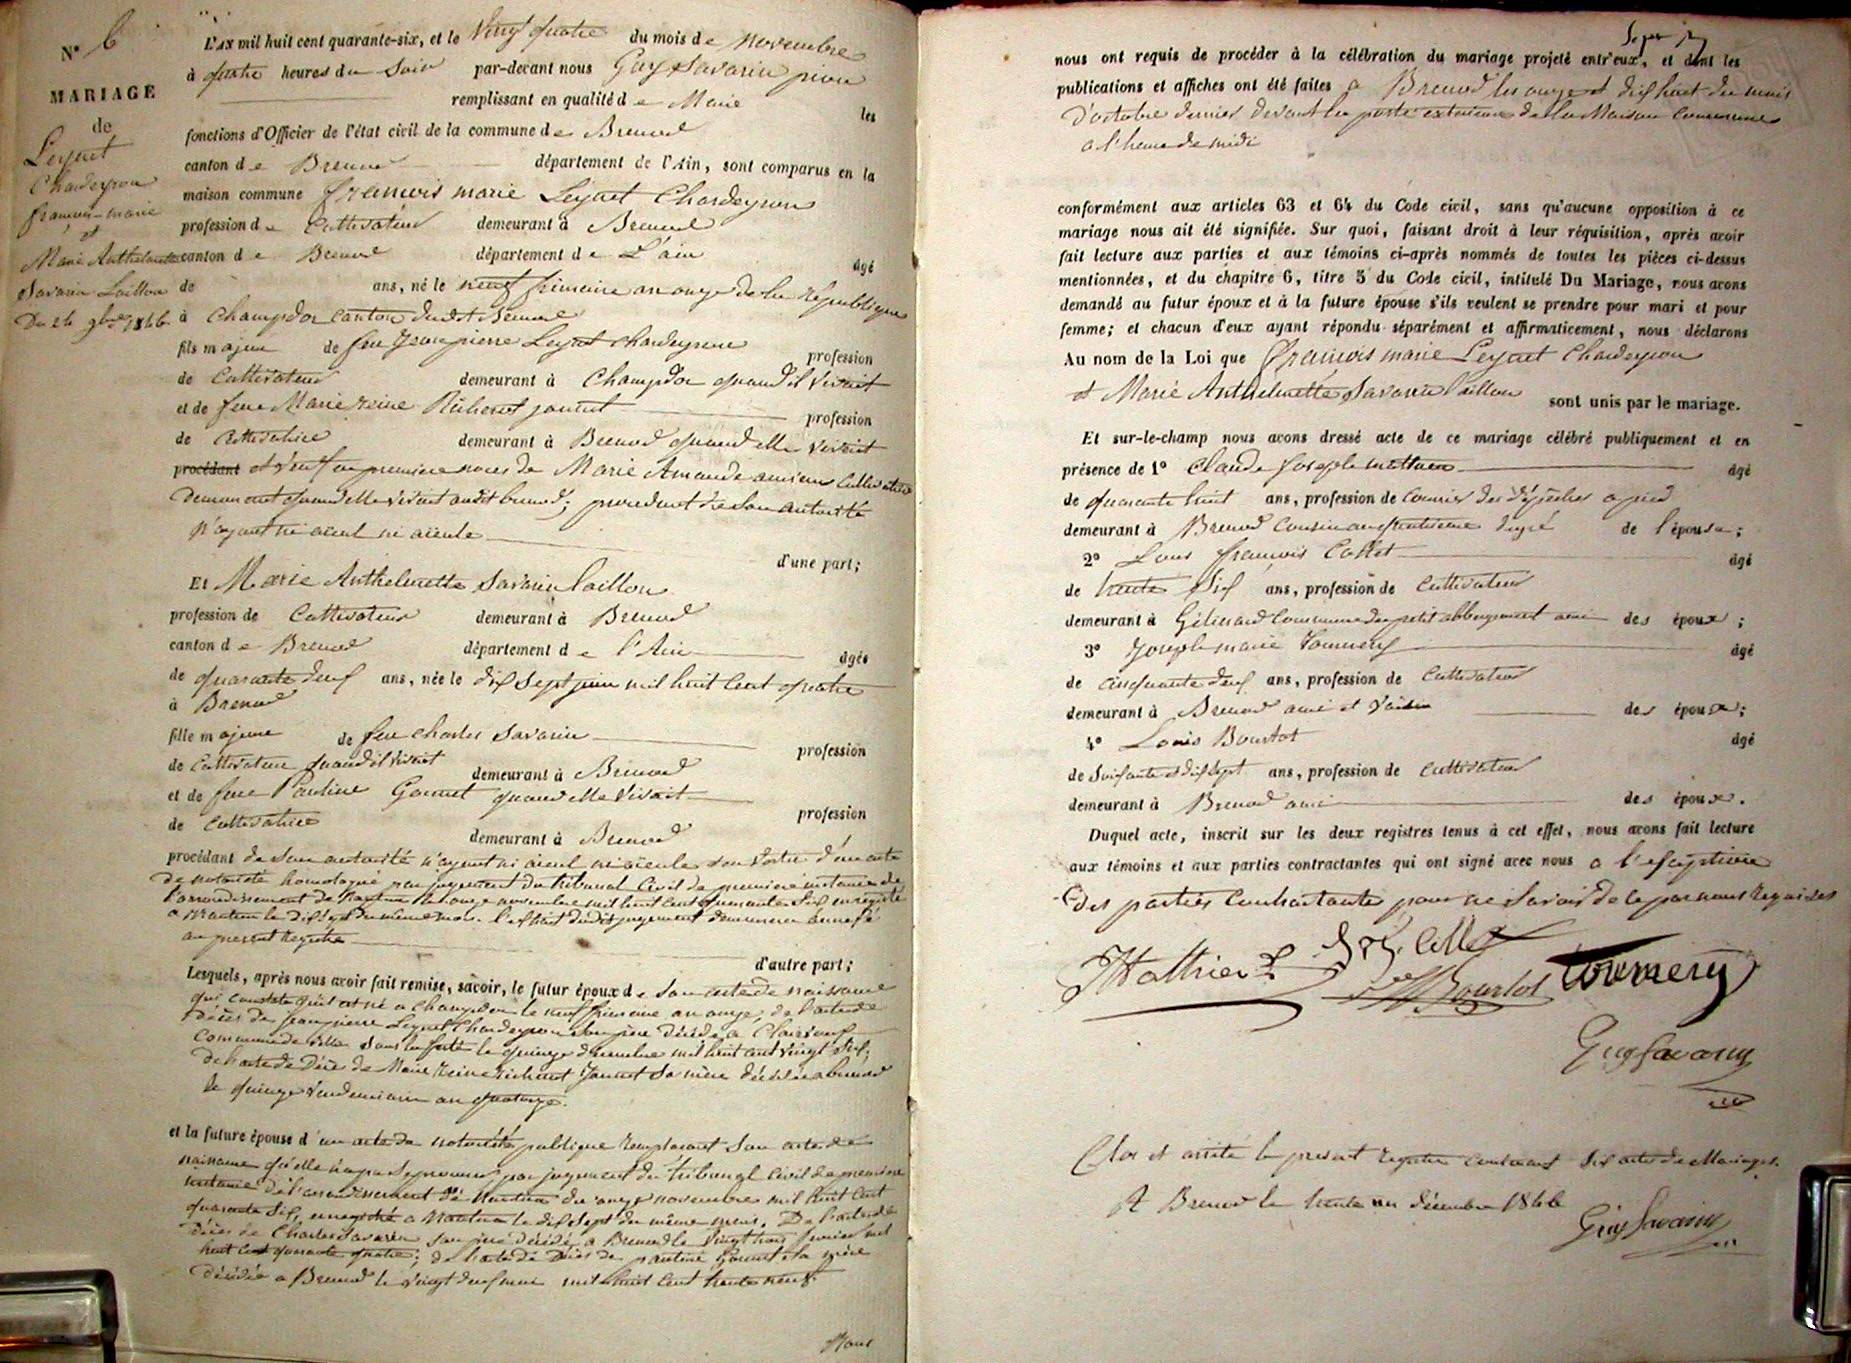 N° 6
MARIAGE
de
Leynet
Chardeyron
françois-marie
et
Marie Anthelmette
Savarin Laillon
Du 24 9bre 1846
L'AN mil huit cent quarante-six, et le vingt quatre du mois de novembre
à quatre heures du Soir par-devant nous Guy Savarin pion
remplissant en qualité de Maire les
fonctions d'Officier de l'état civil de la commune de Brenod
canton de Brenod département de l'Ain, sont comparus en la
maison commune françois marie Leynet Chardeyron
profession de Cultivateur demeurant à Brenod
canton de Brenod département de L'ain âgé
de ans, né le neuf frimaire an onze de la République
à Champdor canton dudit Brenod
fils majeur de feu Jean pierre Leynet chardeyron profession
de Cultivateur demeurant à Champdor quand il vivait
et de feue Marie reine Richerot jannet profession
de Cultivatrice demeurant à Brenod quand elle vivait
procédant et veuf en premiere noces de Marie Amande ancien Cultivatrice
demeurant quand elle vivait audit brenod; procedant de son autorité
n'ayant ni aïeul ni aïeule
d'une part;
Et Marie Anthelmette Savarin Laillon
profession de Cultivateur demeurant à Brenod
canton de Brenod département de l'Ain âgée
de quarante deux ans, née le dix sept juin mil huit cent quatre
à Brenod
fille majeure de feu Charles Savarin profession
de Cultivateur quand il vivait demeurant à Brenod
et de feue Pauline Gonnet quand elle vivait profession
de Cultivatrice demeurant à Brenod
procédant de son autorité n'ayant ni aïeul ni aïeule en vertu d'un acte
de notoriété homologué par jugement du tribunal Civil de premiere instance de
l'arrondissement de Nantua le onze novembre mil huit cent quarante six enregistré
a Nantua le dix sept du même mois. l'extrait dudit jugement demeurera annexé
au present Registre
d'autre part;
Lesquels, après nous avoir fait remise, savoir, le futur époux de son acte de naissance
qui constate qu'il est né a Champdor le neuf frimaire an onze, de l'acte de
Décès de Jean pierre Leynet Chardeyron son père décédé a Clairvaux
Commune de ville sous la ferté le quinze decembre mil huit cent vingt six;
de l'acte de Décès de Marie Reine Richerot Jannet sa mère décédée a brenod
le quinze vendemiaire an quatorze.
et la future épouse d'un acte de notoriété publique remplacant son acte de
naissance qu'elle n'a pu se procurer par jugement du tribunal Civil de premiere
instance de l'arrondissement de Nantua du onze novembre mil huit cent
quarante six, enregistré a Nantua le dix sept du même mois. De l'acte de
Décès de Charles Savarin son père décédé a Brenod le vingt trois fevrier mil
huit cent quarante quatre; de l'acte de Décès de pauline Gonnet sa mère
décédée a Brenod le vingt deux mai mil huit cent trente neuf.
Nous
nous ont requis de procéder à la célébration du mariage projeté entr'eux, et dont les
publications et affiches ont été faites a Brenod les onze et dix huit du mois
d'octobre dernier devant la porte exterieure de la Maison Commune
a l'heure de midi
conformément aux articles 63 et 64 du Code civil, sans qu'aucune opposition à ce
mariage nous ait été signifiée. Sur quoi, faisant droit à leur réquisition, après avoir
fait lecture aux parties et aux témoins ci-après nommés de toutes les pièces ci-dessus
mentionnées, et du chapitre 6, titre 5 du Code civil, intitulé Du Mariage, nous avons
demandé au futur époux et à la future épouse s'ils veulent se prendre pour mari et pour
femme; et chacun d'eux ayant répondu séparément et affirmativement, nous déclarons
Au nom de la Loi que françois marie Leynet Chardeyron
et Marie Anthelmette Savarin Laillon sont unis par le mariage.
Et sur-le-champ nous avons dressé acte de ce mariage célébré publiquement et en
présence de 1° Claude Joseph Mathieu âgé
de quarante huit ans, profession de Courrier des dépêches a pied
demeurant à Brenod cousin au quatrieme degré de l'épouse;
2° Louis françois Collet âgé
de trente six ans, profession de Cultivateur
demeurant à Gélinard Commune du petit abbergement ami des époux;
3° Joseph marie Tournery âgé
de cinquante deux ans, profession de Cultivateur
demeurant à Brenod ami et voisin des époux;
4° Louis Bourlot âgé
de Soixante et dix sept ans, profession de Cultivateur
demeurant à Brenod ami des époux.
Duquel acte, inscrit sur les deux registres tenus à cet effet, nous avons fait lecture
aux témoins et aux parties contractantes qui ont signé avec nous a l'exception
des parties Contractantes pour ne savoir de ce par nous Requises
Mathieu Collet
Bourlot Tournery
Guy Savarin
Clos et arrêté le present registre contenant six actes de Mariages.
A Brenod le trente un decembre 1846
Guy Savarin